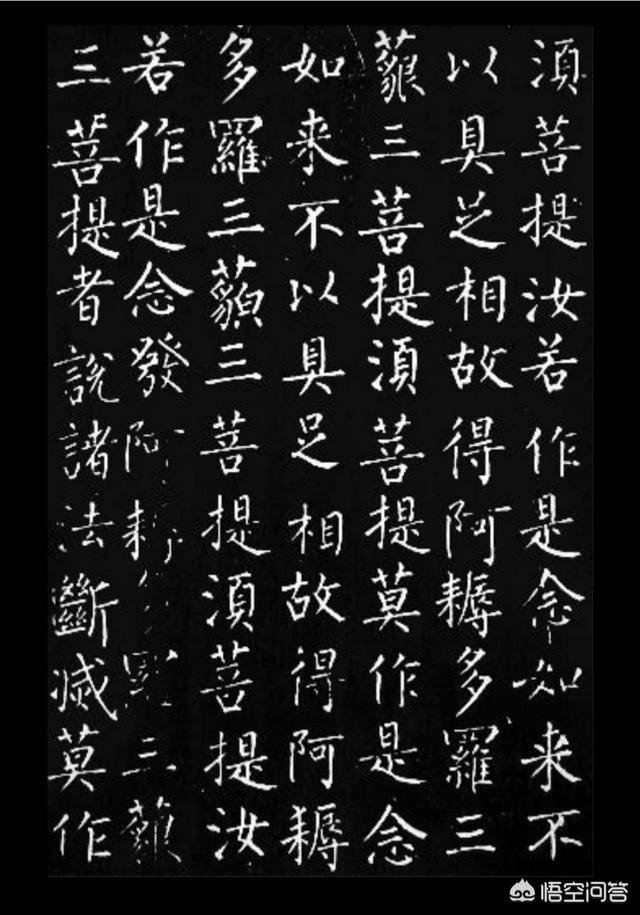 湏菩提汝若作是念如来不
以具足相故得阿耨多羅三
藐三菩提湏菩提莫作是念
如来不以具足相故得阿耨
多羅三藐三菩提湏菩提汝
若作是念發阿耨羅三藐
三菩提者說諸法斷滅莫作
悟空问答